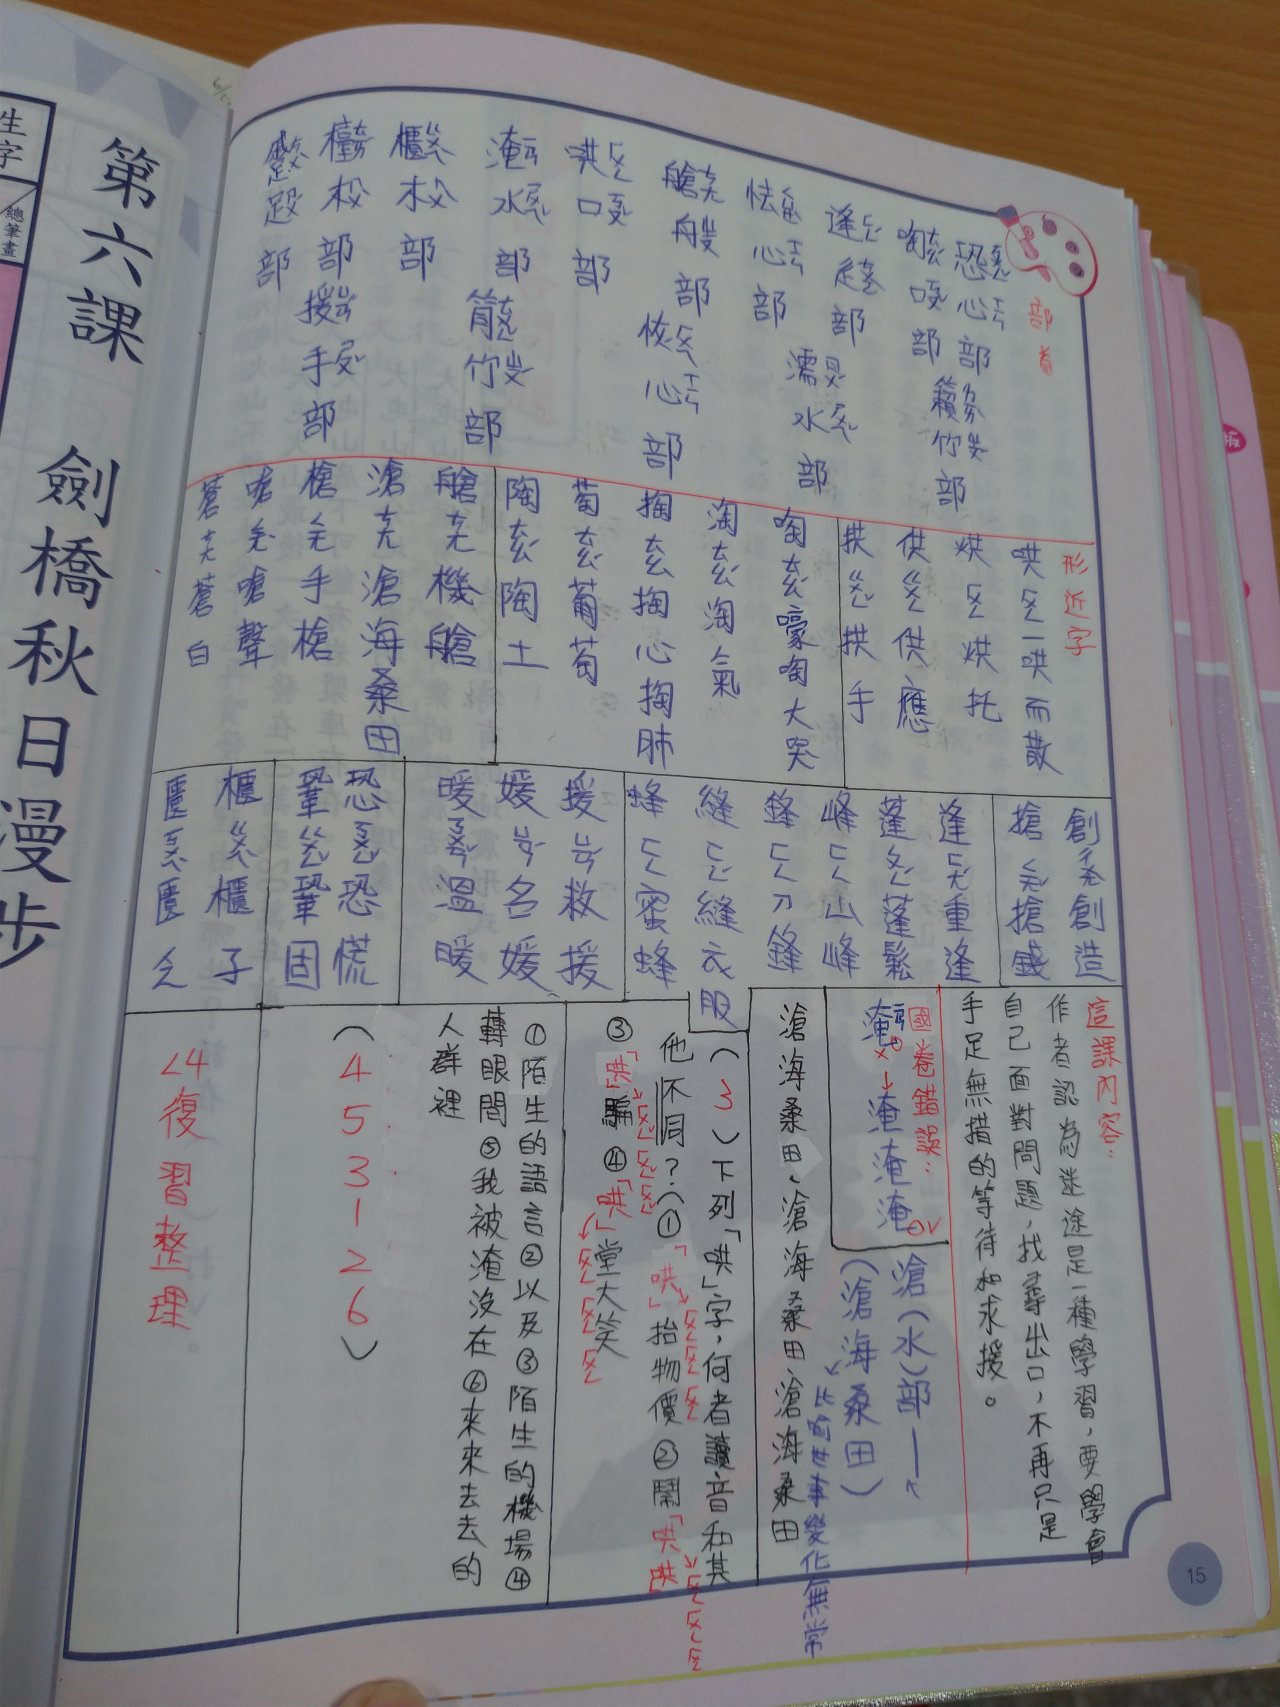 部首
恐ㄎㄨㄥˇ心ㄒㄧㄣ部
籟ㄌㄞˋ竹ㄓㄨˊ部
啕ㄊㄠˊ口ㄎㄡˇ部
逢ㄈㄥˊ
部
濡ㄖㄨˊ水ㄕㄨㄟˇ部
怯ㄑㄩㄝˋ心ㄒㄧㄣ部
艙ㄘㄤ舟ㄓㄡ部
恢ㄏㄨㄟ心ㄒㄧㄣ部
哄ㄏㄨㄥ口ㄎㄡˇ部
淹ㄧㄢ水ㄕㄨㄟˇ部
筲竹ㄓㄨˊ部
櫃ㄍㄨㄟˋ木ㄇㄨˋ部
木ㄇㄨˋ部
援ㄩㄢˊ手ㄕㄡˇ部
部
形近字
哄ㄏㄨㄥ一哄而散
烘ㄏㄨㄥ烘托
供ㄍㄨㄥ供應
拱ㄍㄨㄥˇ拱手
啕ㄊㄠˊ嚎啕大哭
淘ㄊㄠˊ淘氣
掏ㄊㄠ掏心掏肺
萄ㄊㄠˊ葡萄
陶ㄊㄠˊ陶土
艙ㄘㄤ機艙
滄ㄘㄤ滄海桑田
槍ㄑㄧㄤ手槍
嗆ㄑㄧㄤˋ嗆聲
蒼ㄘㄤ蒼白
創ㄔㄨㄤˋ創造
搶ㄑㄧㄤˇ搶錢
逢ㄈㄥˊ重逢
蓬ㄆㄥˊ蓬鬆
峰ㄈㄥ山峰
鋒ㄈㄥ刀鋒
縫ㄈㄥˊ縫衣服
蜂ㄈㄥ蜜蜂
援ㄩㄢˊ救援
媛ㄩㄢˊ名媛
暖ㄋㄨㄢˇ溫暖
恐ㄎㄨㄥˇ恐慌
鞏ㄍㄨㄥˇ鞏固
櫃ㄍㄨㄟˋ櫃子
匱ㄎㄨㄟˋ匱乏
這課內容：
作者認為迷途是一種學習，要學會
自己面對問題，找尋出口，不再只是
手足無措的等待和求援。
國卷錯誤：
淹→淹淹淹
滄（水）部—
（滄海桑田）
比喻世事變化無常
滄海桑田、滄海桑田、滄海桑田
（3）下列「哄」字，何者讀音和其
他不同？①「哄」抬物價②鬧「哄哄」
③「哄」騙④「哄」堂大笑
①陌生的語言②以及③陌生的機場④
轉眼間⑤我被淹沒在⑥來來去去的
人群裡
（453126）
L4復習整理
15
生字
總筆畫
第六課 劍橋秋日漫步